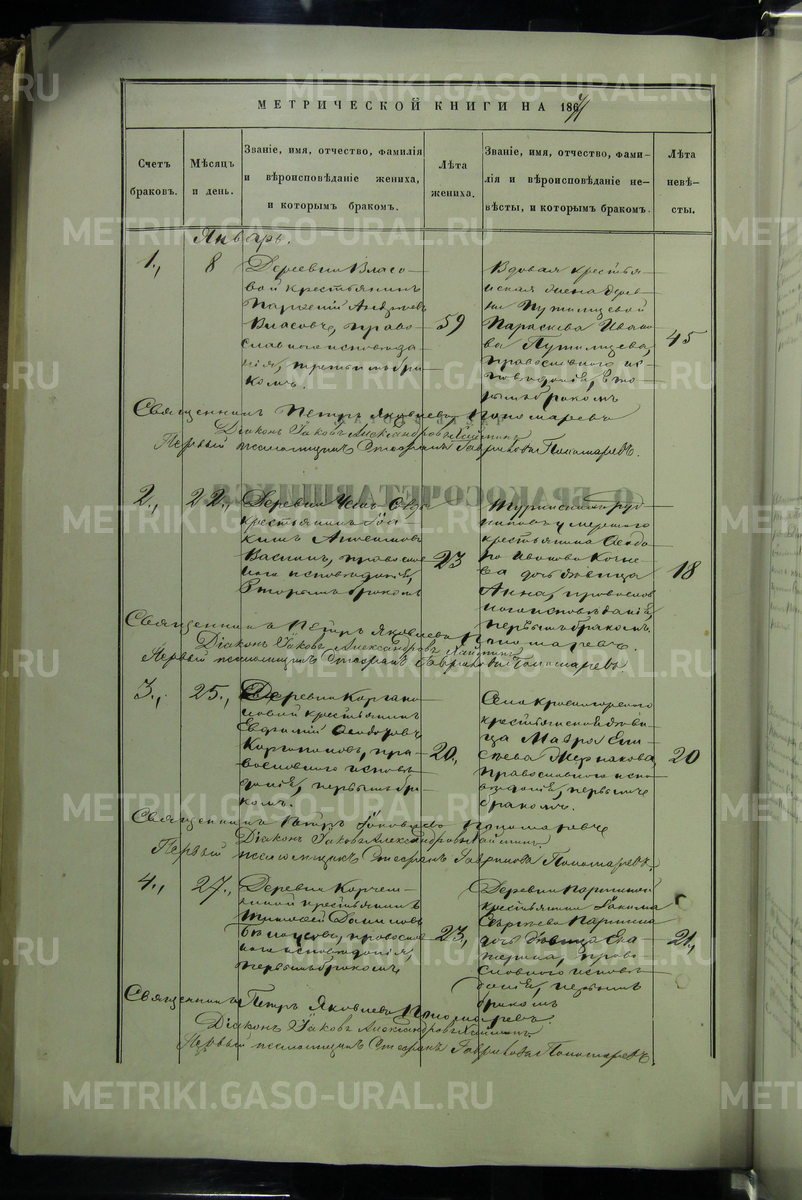 МЕТРИЧЕСКОЙ КНИГИ НА 1871
Счетъ браковъ.
Мѣсяцъ и день.
Званіе, имя, отчество, фамилія
и вѣроисповѣданіе жениха,
и которымъ бракомъ.
Лѣта жениха.
Званіе, имя, отчество, фами-
лія и вѣроисповѣданіе не-
вѣсты, и которымъ бракомъ.
Лѣта невѣ-
сты.
Январь.
1., 8
Деревни Власо-
вой крестьянинъ
Андреевъ
Власовъ, право
славнаго исповѣда
нія, третьимъ бра
комъ.
59
Вдовая крестья
нская жена дерев
ни Путилцевой
Параскева Ивано
ва Путилцева,
православнаго ис
повѣданія, вто
рымъ бракомъ
45
Священникъ Петръ Яковлевъ Пономаревъ
Діаконъ Іаковъ Александровъ
Первый псаломщикъ Стефанъ Гавриловъ Пономаревъ.
О БРАКОСОЧЕТАВШИХСЯ
2., 22.,
Деревни
крестьянинъ Іоа
кимъ
православ
наго исповѣданія,
вторымъ бракомъ
23
Туринскихъ руд
никовъ умершаго
крестьянина Ѳеодо
ра Иванова
ва дочь дѣвица
Анна, православ
наго исповѣданія,
первымъ бракомъ.
18
Священникъ Петръ Яковлевъ Пономаревъ.
Діаконъ Іаковъ Александровъ
Первый псаломщикъ Стефанъ Гавриловъ Пономаревъ
3., 25.,
Деревни Каргапо
ловой крестьянинъ
Евфимій Ѳеодоровъ
Каргаполовъ, пра
вославнаго исповѣ
данія, первымъ бра
комъ.
20,
Села Красногорскаго
крестьянская дѣви
ца Мавра Ели
сѣева Мернакова
православнаго испо
вѣданія, первымъ
бракомъ.
20
Священникъ Петръ Яковлевъ Пономаревъ
Діаконъ Іаковъ Александровъ
Первый псаломщикъ Стефанъ Гавриловъ Пономаревъ.
4., 27.,
Деревни Корчем-
киной крестьянинъ
Тимофей Даниловъ
Бѣлоусовъ, православ
наго исповѣданія,
первымъ бракомъ,
23,
Деревни Паршиной
крестьянина Іакима
Сергѣева Паршина
дочь дѣвица Ека
терина, право
славнаго исповѣ
данія, первымъ
бракомъ
21,
Священникъ Петръ Яковлевъ Пономаревъ.
Діаконъ Іаковъ Александровъ
Первый псаломщикъ Стефанъ Гавриловъ Пономаревъ.
METRIKI.GASO-URAL.RU